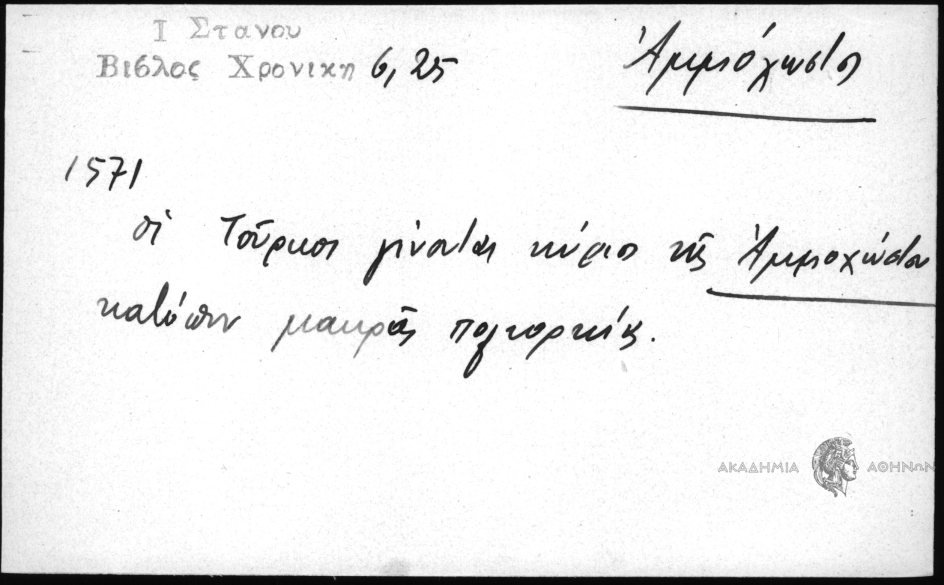 Ι Στανου
Βιβλος Χρονικη 6, 25
Ἀμμόχωστος
1571
οἱ Τοῦρκοι γίνονται κύριοι τῆς Ἀμμοχώστου
κατόπιν μακρᾶς πολιορκίας.
ΑΚΑΔΗΜΙΑ ΑΘΗΝΩΝ